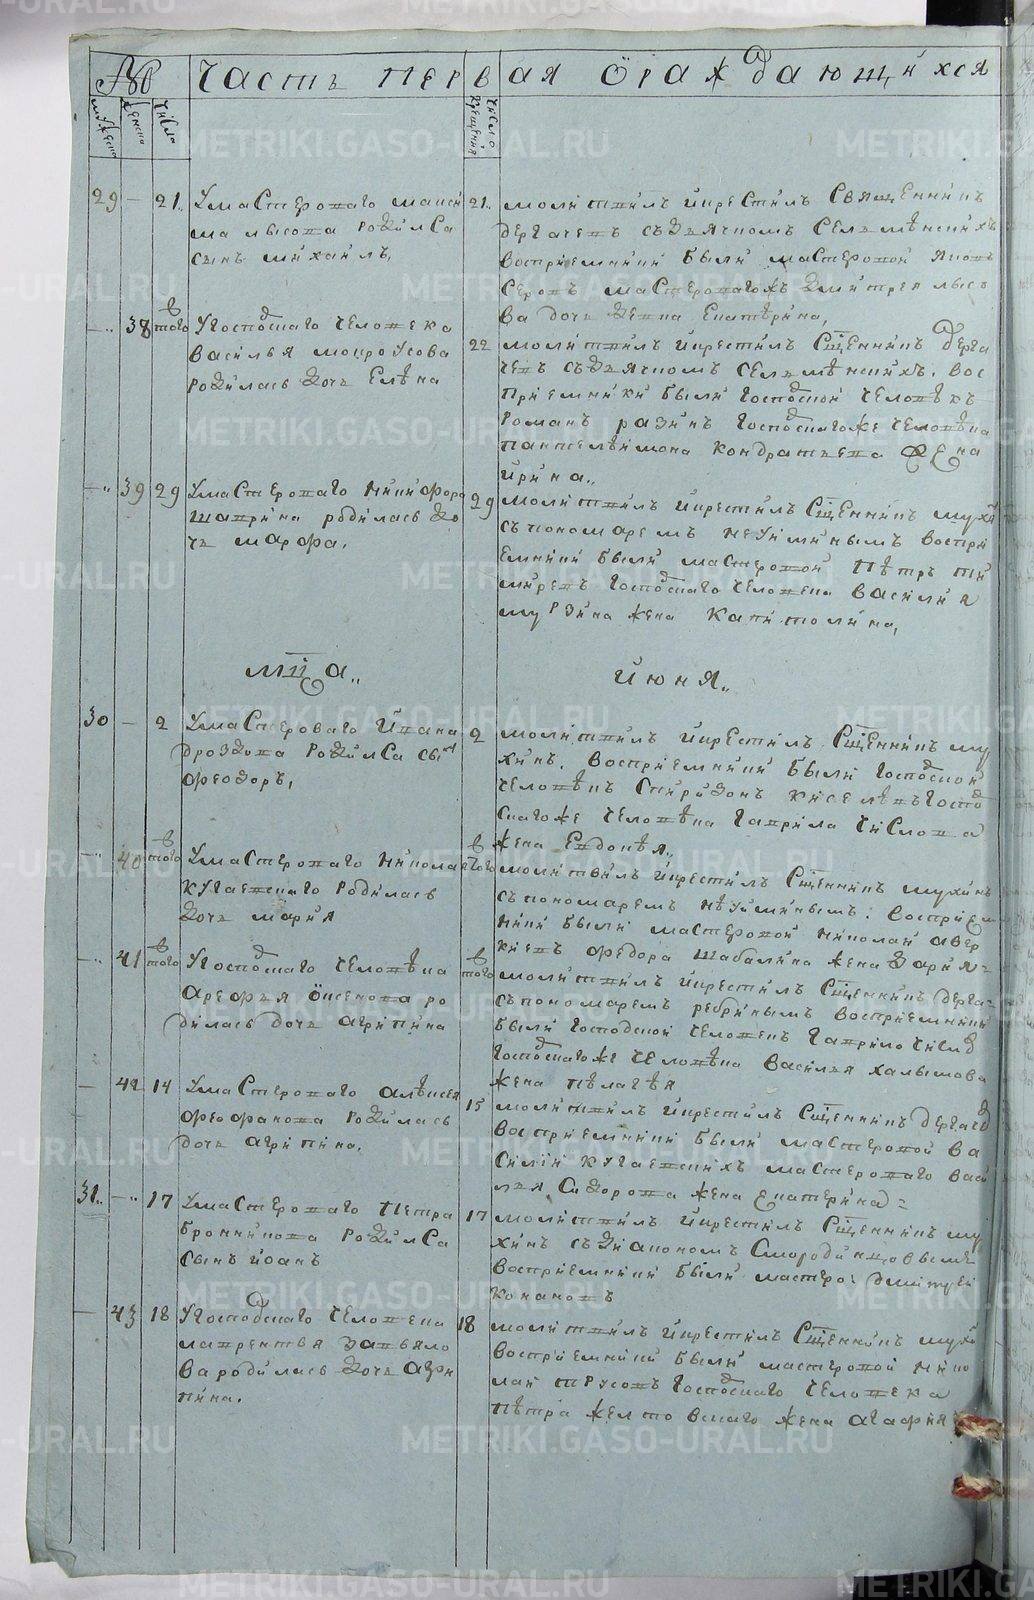 № Часть первая ораждающихся
мужеска
женска
число
число крещения
29 — 21. Умастероваго макси
ма лысова родился
сынъ михаилъ,
21. молитвилъ икрестилъ священникъ
дергачевъ съдьячкомъ сельменскихъ
восприемники были мастеровой яковъ
серовъ мастероваго дмитрея лысо
ва дочь девка екатерина,
— 38 втого Угосподскаго человека
василья мокроусова
родилась дочь елѣна
22 молитвилъ икрестилъ сщенникъ дерга
чевъ съдьячкомъ сельмѣнскихъ. вос
приемники были господской человѣкъ
романъ разинъ господскагоже человѣка
пантелѣимона кондратьева жена
ирина.
— 39 29 Умастероваго никифора
шаврина родилась до
чь марфа.
29 молитвилъ икрестилъ сщенникъ мухи
съпономаремъ неуйминымъ воспри
емники были мастеровой пѣтръ пи
миревъ господскаго человека василия
мурзина жена капитолина,
мца
июня
30 — 2 Умастероваго ивана
дроздова родился сы
феодоръ,
2 молитвилъ икрестилъ сщенникъ му
хинъ. восприемники были господской
человѣкъ спиридонъ киселѣвъ госпо
скагоже человѣка гаврила числова
жена евдокѣя.
— 40 втого Умастероваго никола
кугаевскаго родилась
дочь мария
втого молитвилъ икрестилъ сщенникъ мухинъ
съпономаремъ нѣуйминымъ. восприем
ники были мастеровой николай авер
киевъ федора шабалина жена дария
— 41 втого Угосподскаго человѣка
арефья оксенова ро
дилась дочь агрипина
втого молитвилъ икрестилъ сщенникъ дерга
съпономаремъ ребринымъ восприемники
были господской человекъ гаврило числ
господскагоже человѣка василья халымова
жена пѣлагѣя
— 42 14 Умастероваго алѣксея
феофанова родилась
дочь агрипина.
15 молитвилъ икрестилъ сщенникъ дергаче
восприемники были мастеровой ва
силий кугаевскихъ мастероваго васи
лья сидорова жена екатерина
31. — 17 Умастероваго петра
бронникова родился
сынъ иоанъ
17 молитвилъ икрестилъ сщенникъ му
хинъ съдиакономъ смородинцовыме
восприемники были мастеро: дмитрей
конановъ
— 43 18 Угосподскаго человека
лаврентья завьяло
ва родилась дочь агри
пина.
18 молитвилъ икрестилъ сщенникъ мухи
восприемники были мастеровой нико
лай трусовъ господскаго человека
пѣтра желтовскаго жена агафия
METRIKI.GASO-URAL.RU